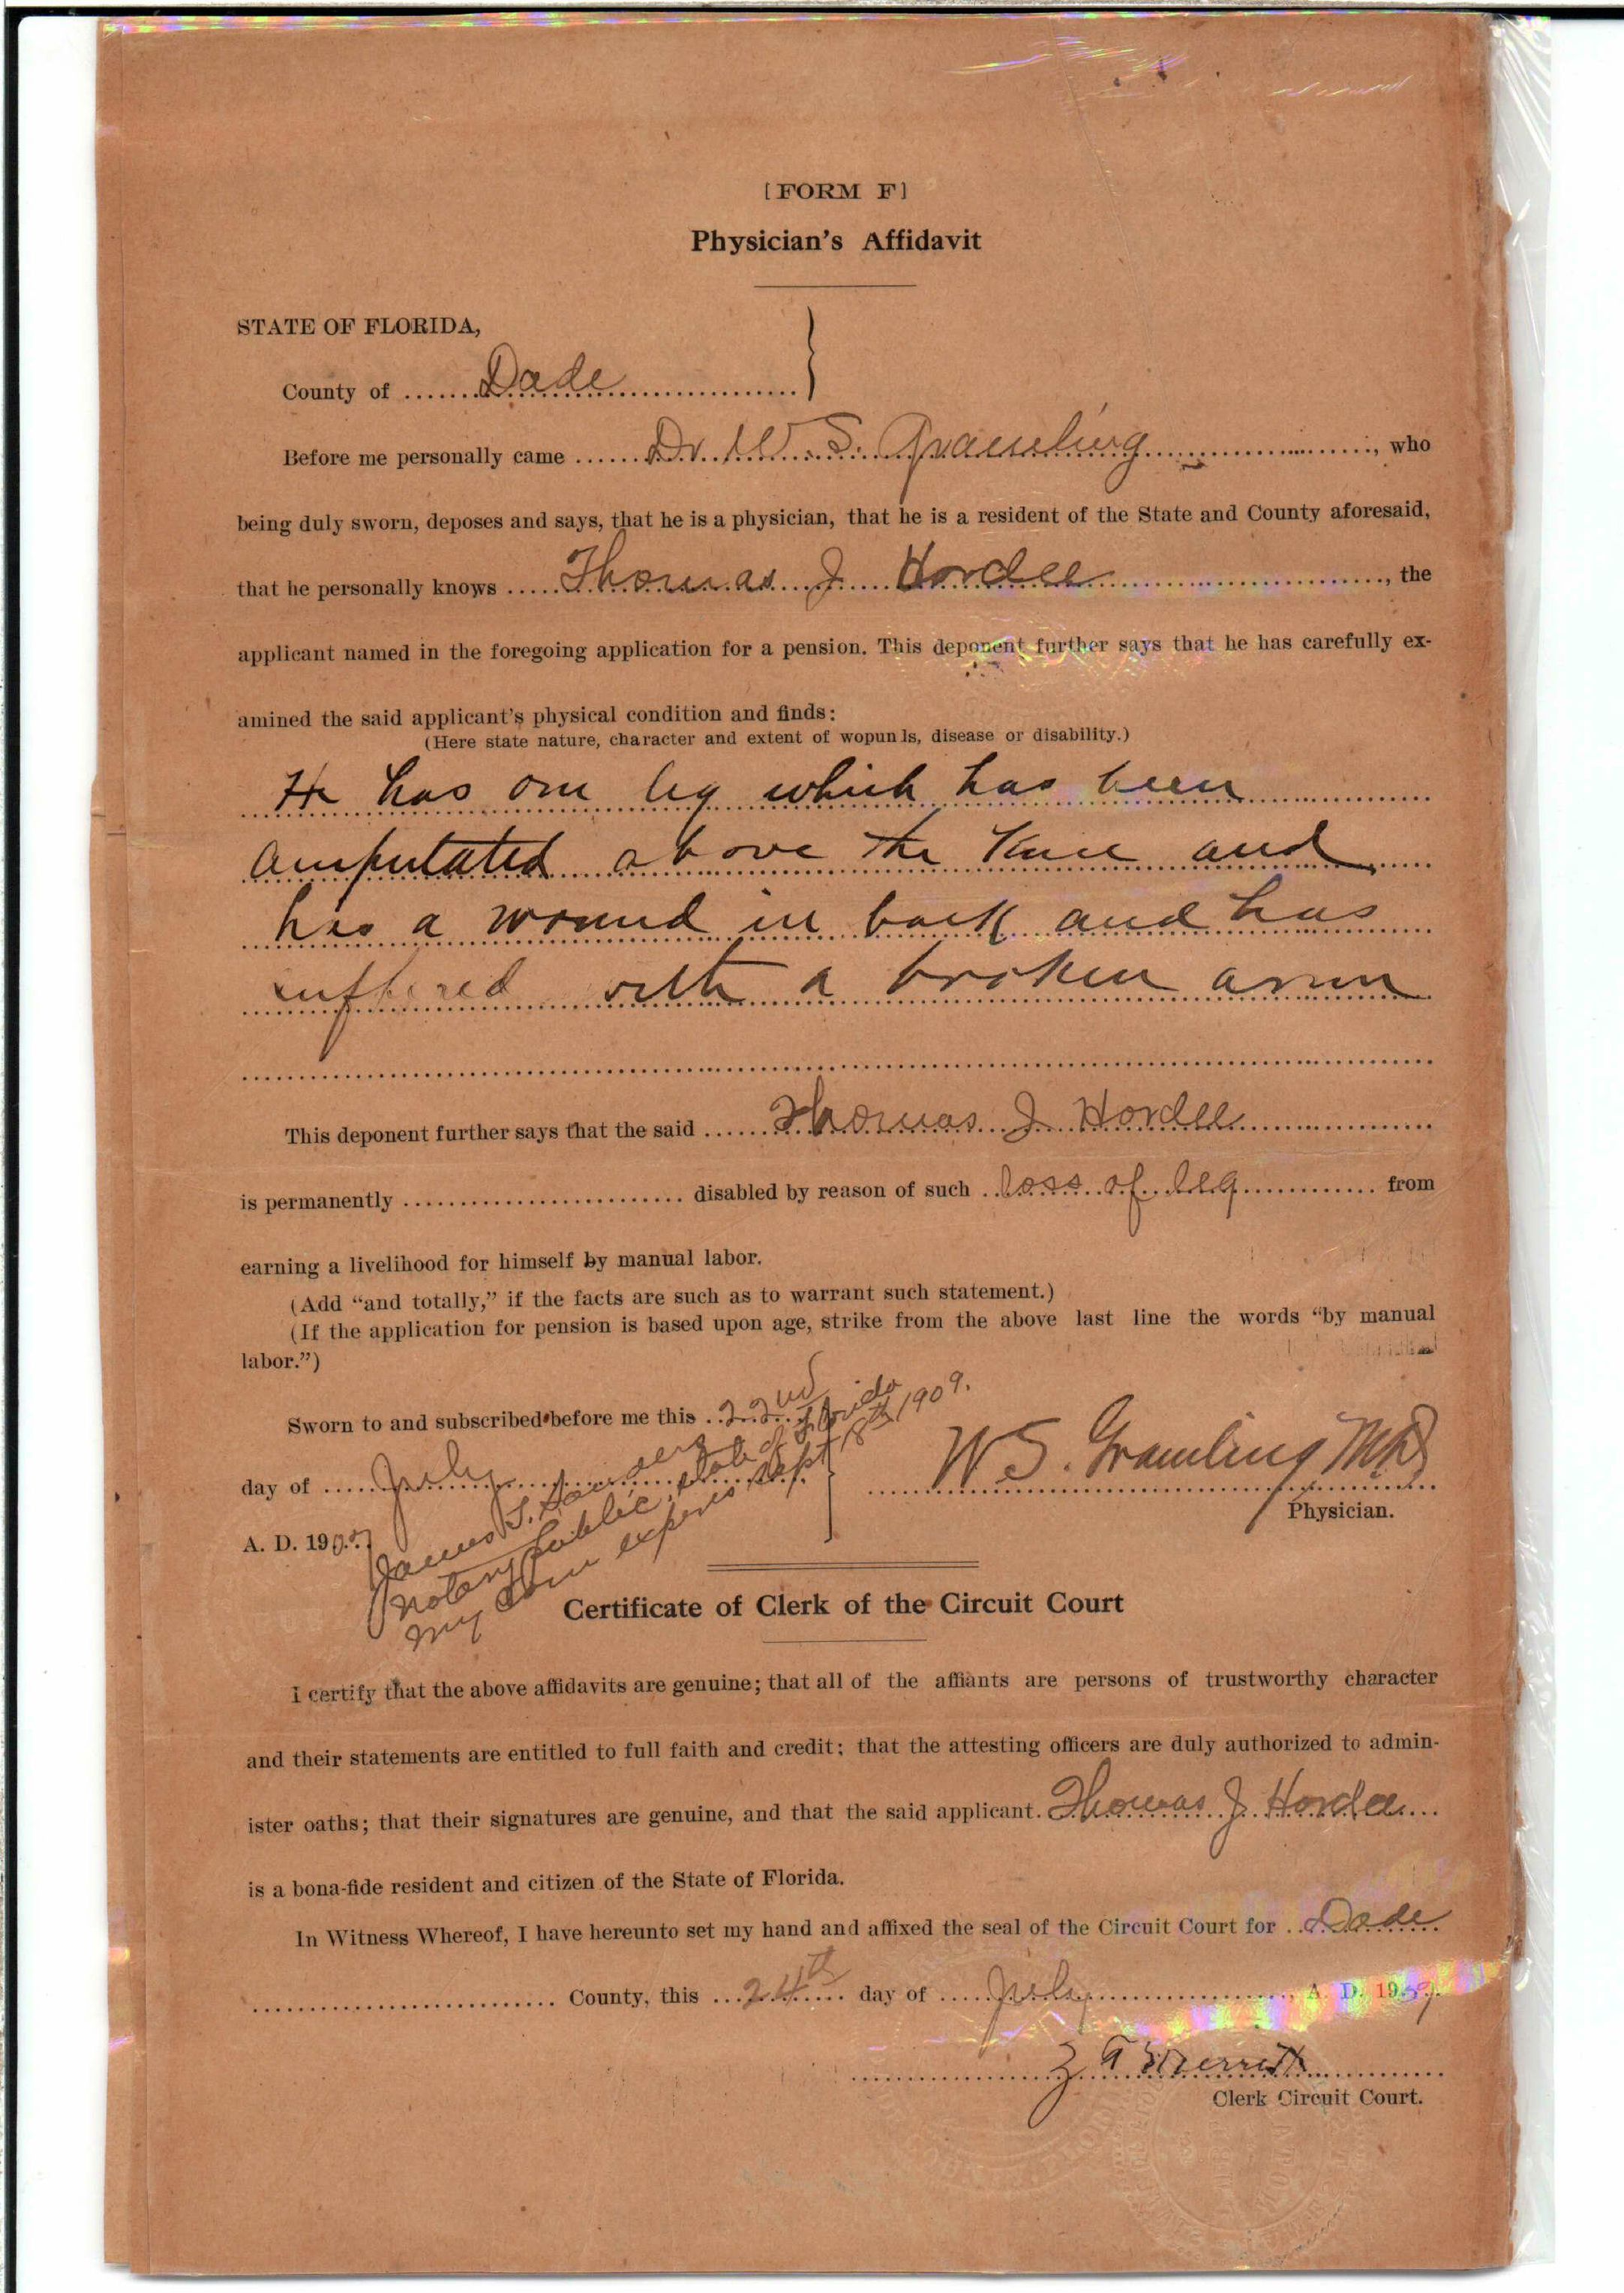 [FORM F]
Physician's Affidavit
STATE OF FLORIDA,
County of Dade
Before me personally came Dr. W. S. Gramling, who
being duly sworn, deposes and says, that he is a physician, that he is a resident of the State and County aforesaid,
that he personally knows Thomas J Hordee, the
applicant named in the foregoing application for a pension. This deponent further says that he has carefully ex-
amined the said applicant's physical condition and finds:
(Here state nature, character and extent of wopun ls, disease or disability.)
He has one leg which has been
amputated above the knee and
has a wound in back and has
suffered with a broken arm
This deponent further says that the said Thomas J Hordee
is permanently disabled by reason of such loss of leg from
earning a livelihood for himself by manual labor.
(Add "and totally," if the facts are such as to warrant such statement.)
(If the application for pension is based upon age, strike from the above last line the words "by manual
labor.")
Sworn to and subscribed before me this 22nd
day of July
A. D. 1907
James T.
Notary Public, State of Florida
My Com expires Sept 18th 1909.
W S. Gramling MD
Physician.
Certificate of Clerk of the Circuit Court
I certify that the above affidavits are genuine; that all of the affiants are persons of trustworthy character
and their statements are entitled to full faith and credit; that the attesting officers are duly authorized to admin-
ister oaths; that their signatures are genuine, and that the said applicant. Thomas J. Hordee
is a bona-fide resident and citizen of the State of Florida.
In Witness Whereof, I have hereunto set my hand and affixed the seal of the Circuit Court for Dade
County, this 24th day of July A. D. 1907.
Z T Merritt
Clerk Circuit Court.